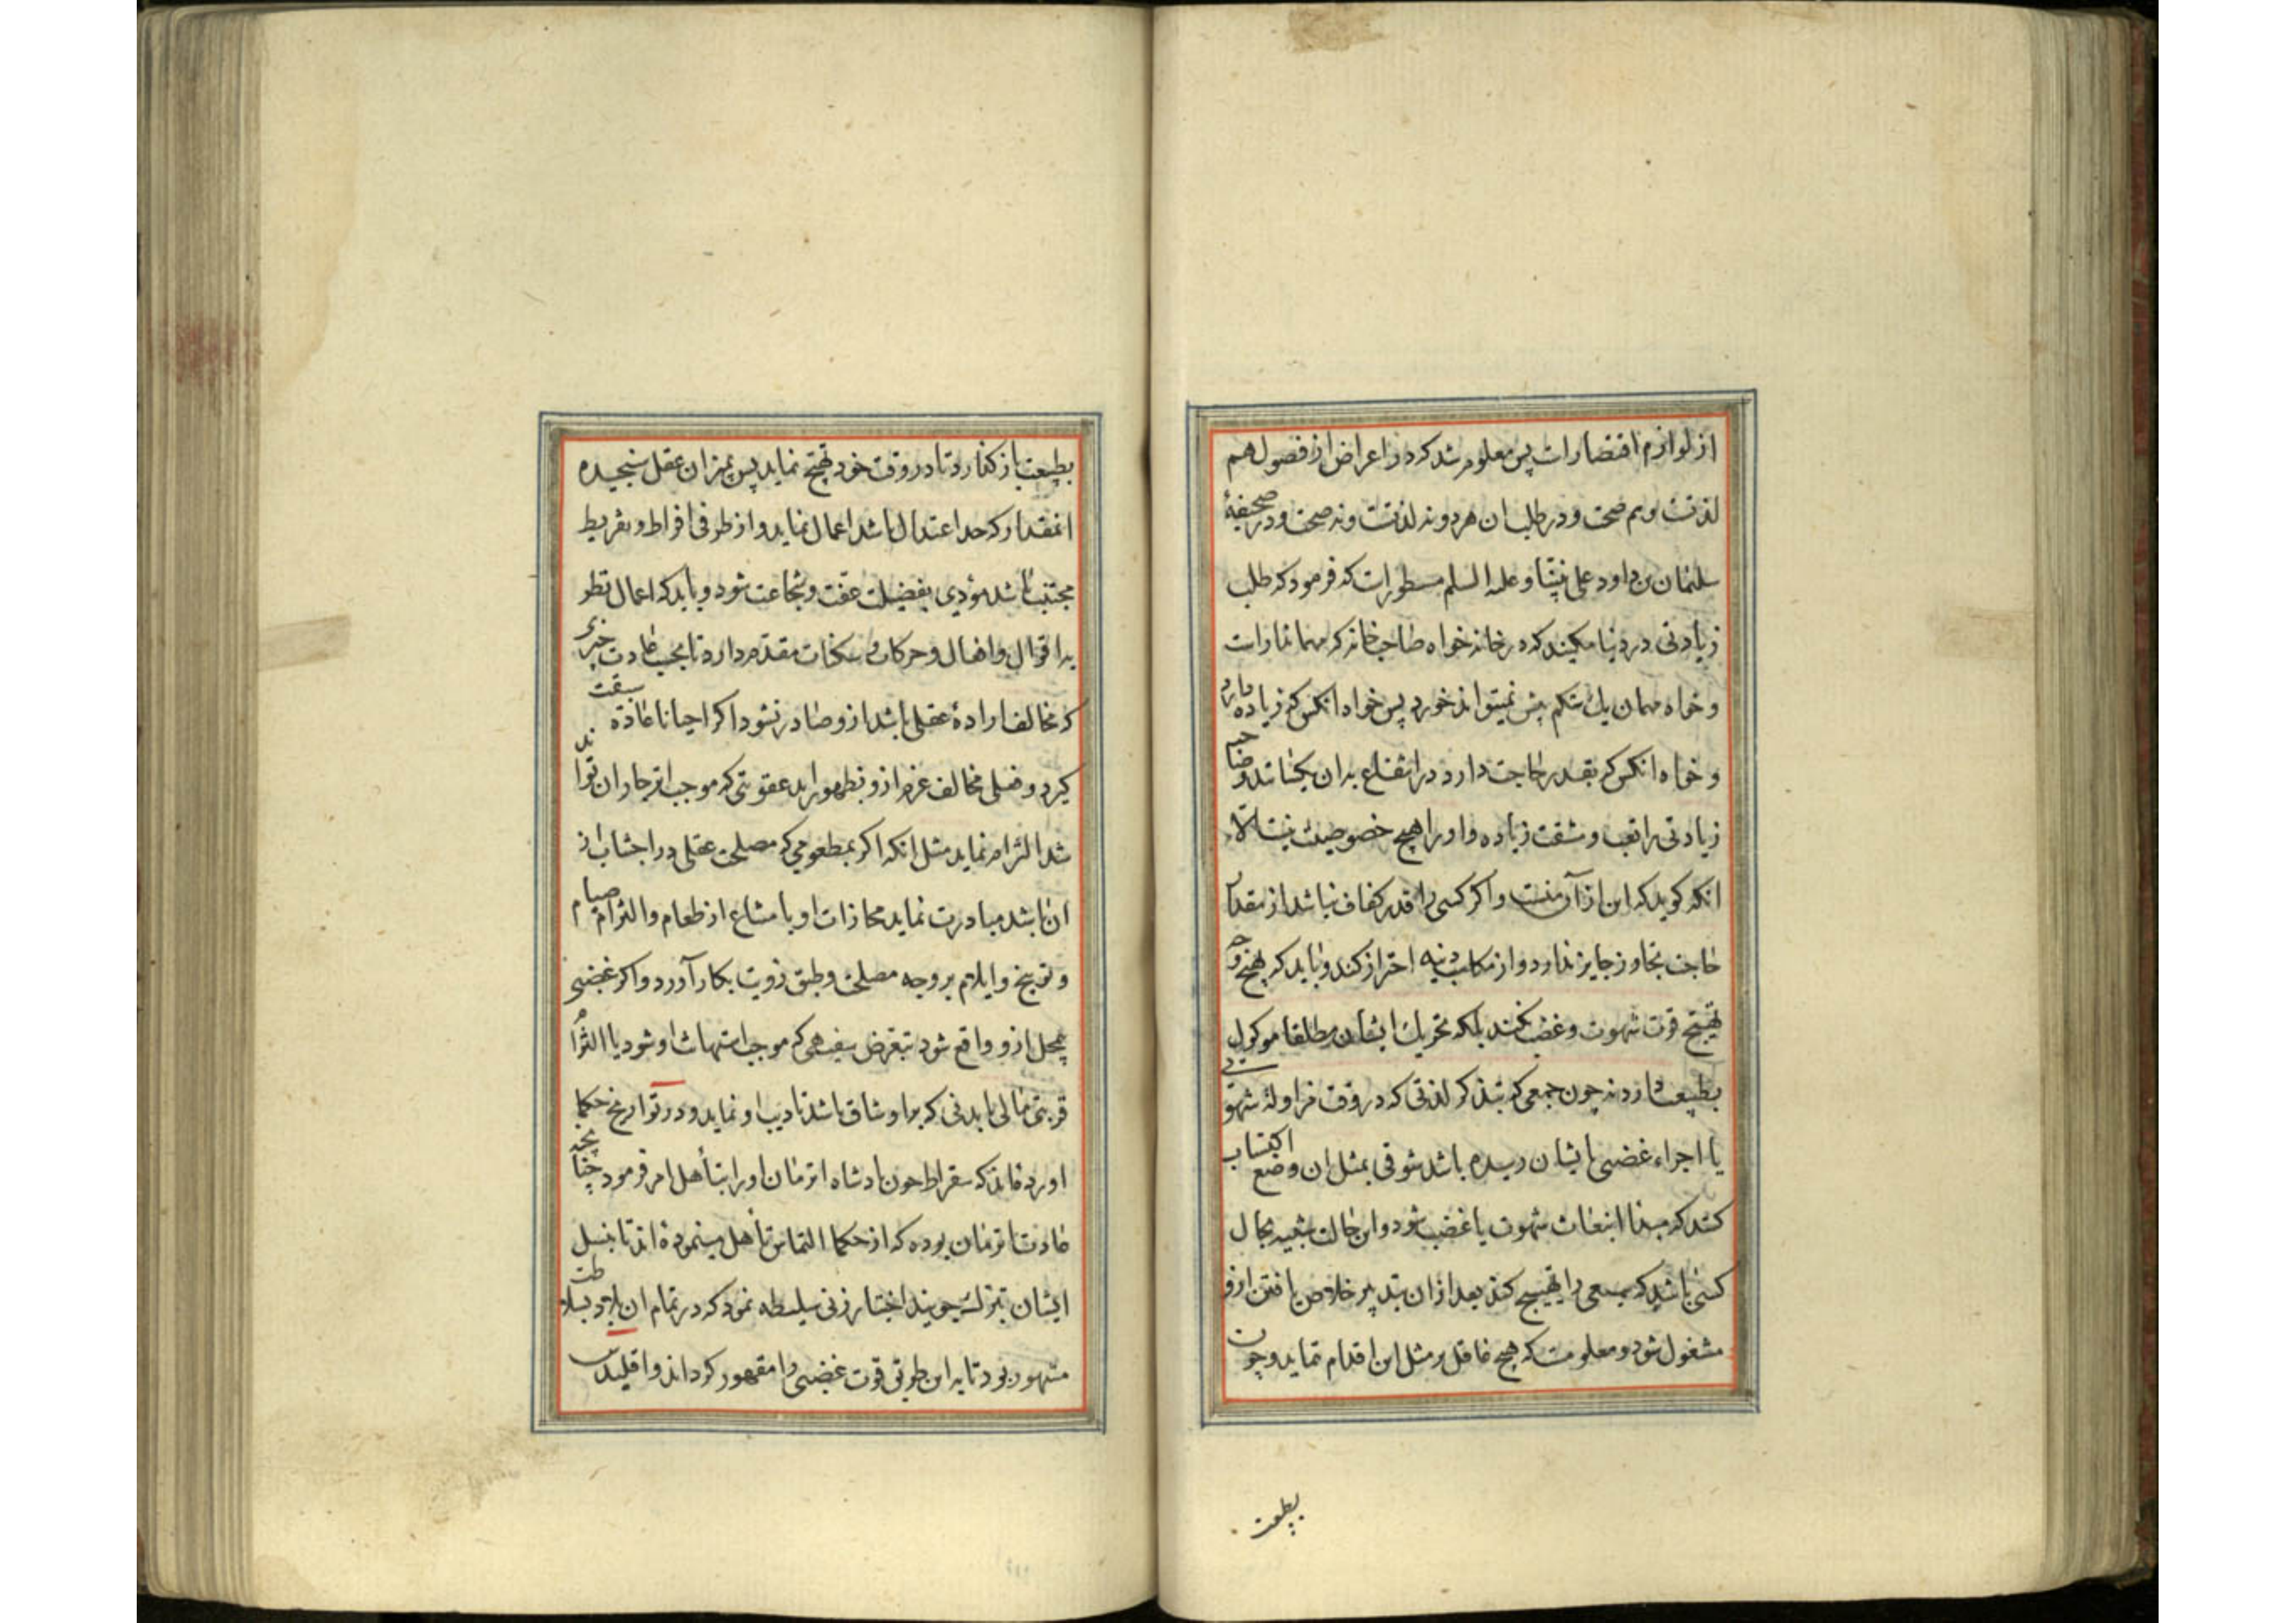 از لوازم اقتصارات پس معلوم شد که در اعراض از فضول هم
لذتست و هم صحت و در طلب ان هر دو نه لذتست و نه صحت و در صحیفهٔ
سلیمان بن داود علی نبینا و علیه السلم مسطورات که فرمود که طلب
زیادتی در دنیا مکنید که در خانه خواه صاحب خانه که مهماندارات
و خواه مهمان یک شکم بیش نمیتواند خورد پس خواه انکس که زیاده دارد
و خواه انکس که بقدر حاجت دارد در انتفاع بدان یکسانند و صاحب
زیادتی را تعب و مشقت زیاده و او را هیچ خصوصیت نیست الا
انکه کوید که این از آن منست و اکر کسی را قدر کفاف نباشد از مقدار
حاجت تجاوز جایز ندارد و از مکاسب دنیه احتراز کند و باید که بهیچ وجه
تهییج قوت شهوت و غضب نکند بلکه تحریک ایشان مطلقا موکول
بطبیعت دارد نه چون جمعی که بتذکر لذتی که در وقت مزاولهٔ شهوتی
یا اجراء غضبی بایشان رسیده باشد شوقی بمثل ان وضع اکتساب
کنند که مبدا انبعاث شهوت یا غضب شود و این حالت شبیه بحال
کسی باشد که سبعی را تهییج کند بعد از ان بتدبیر خلاص یافتن ازو
مشغول شود و معلومست که هیچ عاقل بر مثل این اقدام ننماید و چون
بطبیعت
بطبیعت باز کذارد تا در وقت خود تهییج نماید پس بمیزان عقل سنجیده
انمقدار که حد اعتدال باشد اعمال نماید و از طرفی افراط و تفریط
مجتنب باشد مؤدی بفضیلت عفت و شجاعت شود و باید که اعمال نظر
بر اقوال و افعال و حرکات و سکنات مقدم دارد تا بحسب عادت چیزی
که مخالف ارادهٔ عقلی باشد ازو صادر نشود و اکر احیانا عادة سبقت
کیرد و فعلی مخالف عزم ازو بظهور اید عقوبتی که موجب انزجار ان تواند
شد التزام نماید مثل انکه اکر بمطعومی که مصلحت عقلی در اجتناب از
ان باشد مبادرت نماید مجازات او بامتناع از طعام و التزام صیام
و توبیخ و ایلام بر وجه مصلحت و طبق رویت بکار آورد و اکر غضبی
بیمحل ازو واقع شود بتعرض سفیهی که موجب استهانت او شود یا التزام
قربتی مالی یا بدنی که بر او شاق باشد تادیب او نماید و در تواریخ حکما
اورده‌اند که سقراط چون پادشاه انزمان او را بتأهل امر فرمود چنانچه
عادت انزمان بوده که از حکما التماس تأهل مینموده‌اند تا بنسل
ایشان تبرک جویند اختیار زنی سلیطه نمود که در تمام ان بلاد بسلاطت
مشهور بود تا بر این طریق قوت غضبی را مقهور کرداند و اقلیدس